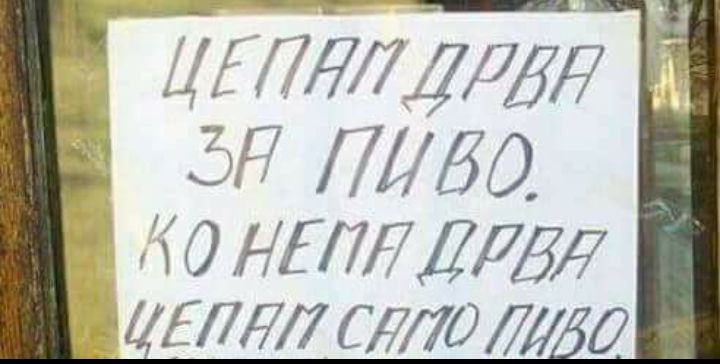 ЦЕПАМ ДРВА
ЗА ПИВО.
КО НЕМА ДРВА
ЦЕПАМ САМО ПИВО